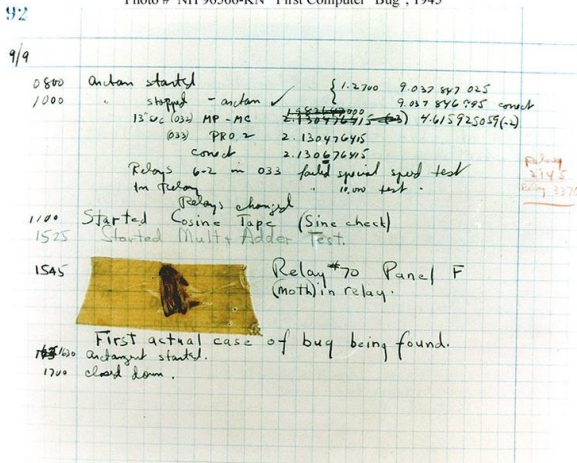 Photo # NH 96566-KN "First Computer "Bug", 1945
92
9/9
0800 Antan started
1000 " stopped - antan ✓ { 1.2700 9.037 847 025
9.037 846 995 conect
13"uc (032) MP - MC 2.130476415 (-3) 4.615925059(-2)
(033) PRO 2 2.130476415
conect 2.130676415
Relays 6-2 in 033 failed special speed test
in Relay " 10.000 test .
Relay
2145
Relay 3370
Relays changed
1100 Started Cosine Tape (Sine check)
1525 Started Mult + Adder Test.
1545 Relay #70 Panel F
(moth) in relay.
First actual case of bug being found.
1630 antangent started.
1700 closed down.